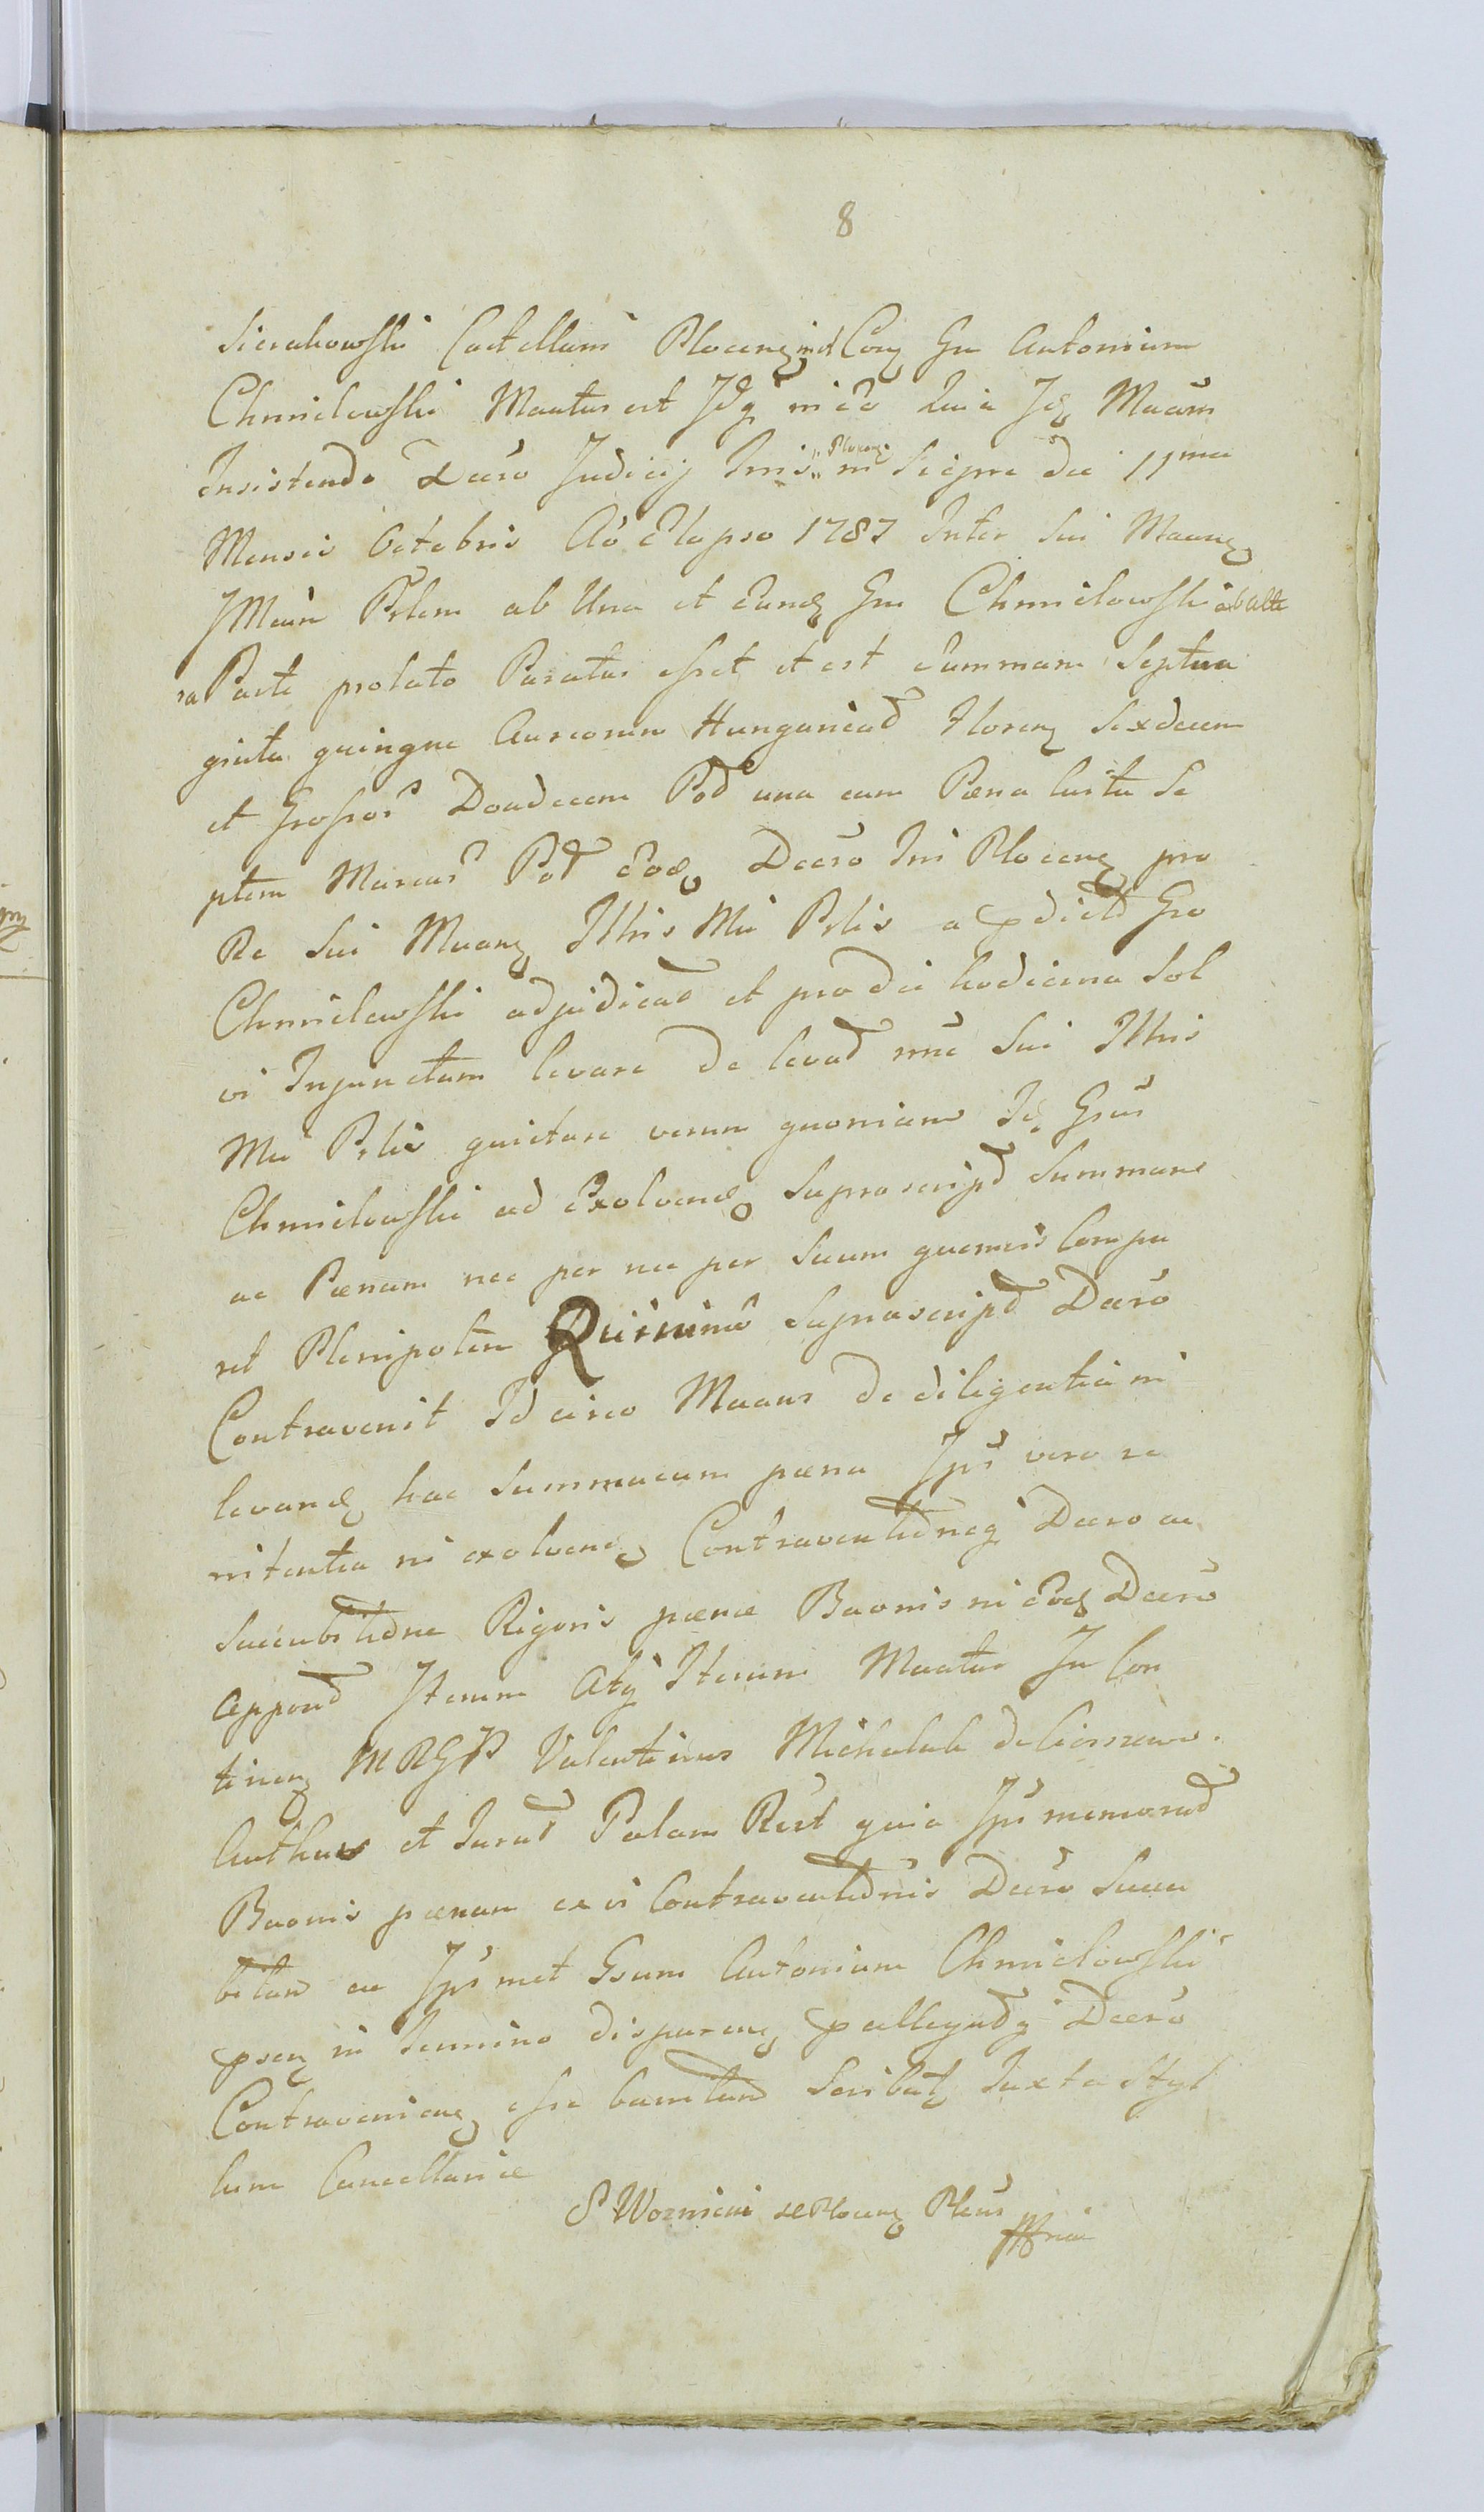 8
Sierakowski Castellani Plocen in et Con Gm Antonium
Chmielowski Mantus est Idq in eo Quia Id Maans
Insistendo Decro Judicij Tris Plocen in Sierpce die 11ma
Mensis Octobris Ao Elapso 1787 Inter Sui Maanz
IMaiu Prlem ab Una et Eund Gm Chmielowski ab alte
ra Parte prolato Paratus esset et est Summam Septua
ginta quinque Aureorum Hungaricad Floren Sexdecem
et Grossos Doudecem Pod una cum Pæna luita Se
ptem Marcas Pod Eod Decro Tri Plocen pro
Re Sui Maanz Illris Mi Prlis a pdicto Gro
Chmielowski adjudicad et pro die hodierna Sol
vi Injunctam levare de levad nne Sui Illris
Mi Prlis quietare verum quoniam Id Grus
Chmielowski ad Exolvend Suprascripd Summam
ac Pænam nec per nec per Suum quemvis Compa
ret Plenipoten Quinimo Suprascripd Decro
Contravenit Id circo Maans de diligentia in
levand hac Summa cum pæna Ipi vero re
nitentia in exolvend Contraventioneq Decro ac
Succubitione Rigoris pænæ Baonis in Eod Decro
Appond Iterum Atq Iterum Maatur In Con
tinen MRGP Valentinus Michalak de
Authus et Jurad Palam Rect quia Ipi memorad
Baonis pænam ex vi Contraventionis Decro Succu
bitam ac Ipi met Grum Antonium Chmielowski
psen in Termino disparen pallegadq Decro
Contravenien esse banitum Scribatz Juxta Styl
lum Cancellariæ
S Woznicki Plocen Plens
mpria